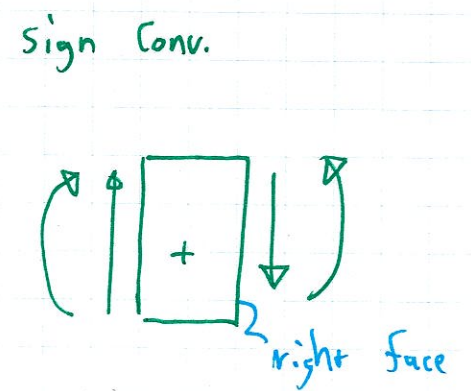 Sign Conv.
+
right face